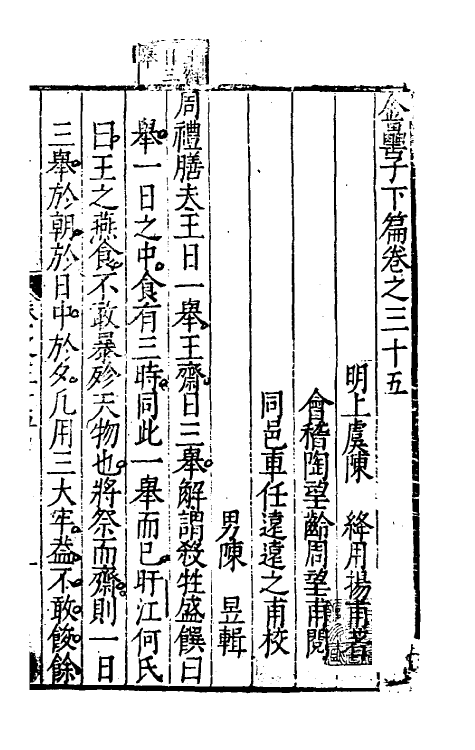 金罍子下篇卷之三十五
明上虞陳 絳用揚甫著
會稽陶望齡周望甫閱
同邑車任遠遠之甫校
男陳 昱輯
周禮膳夫王日一舉王齋日三舉解謂殺牲盛饌曰
舉一日之中食有三時同此一舉而已盱江何氏
曰王之燕食不敢暴殄天物也將祭而齋則一日
三舉於朝於日中於夕凡用三大牢葢不敢餕餘